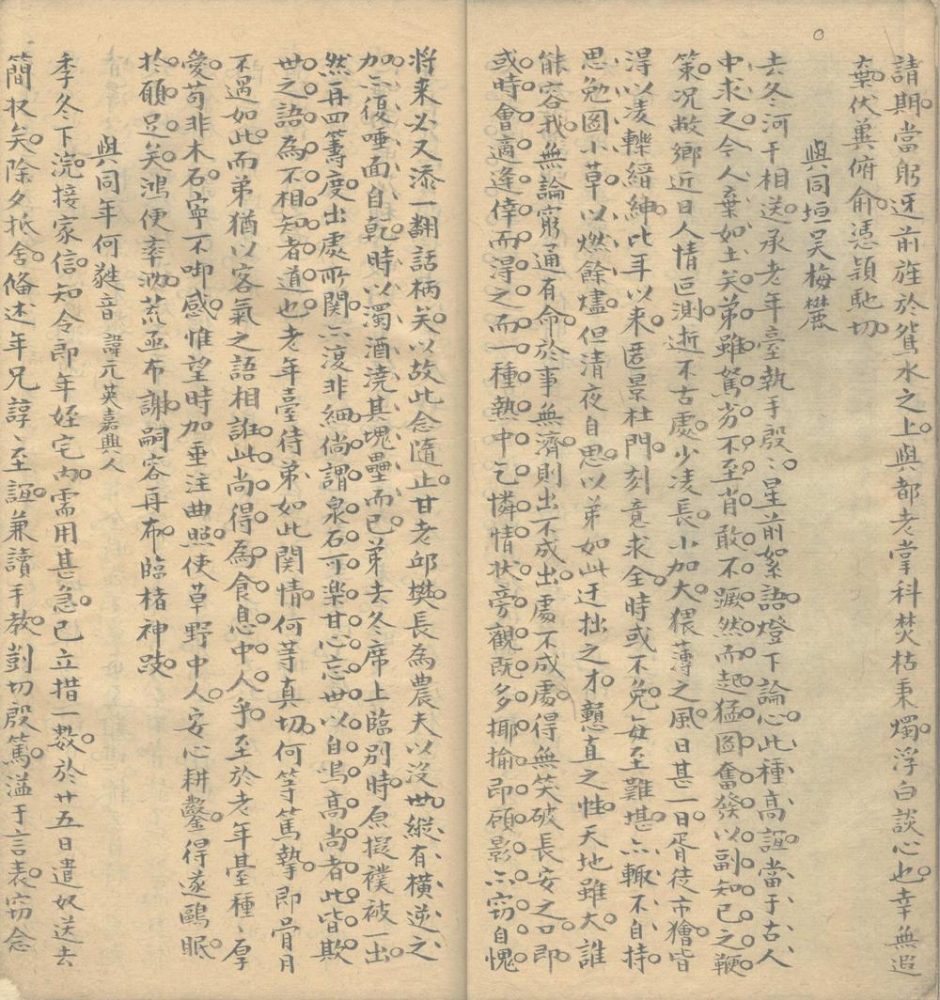 請期當躬迓前旌於鴛水之上與都老掌科焚枯秉燭浮白談心也幸無遐
棄伏冀俯俞憑穎馳切
與同垣吳梅麓
去冬河干相送承老年臺執手殷〻星前絮語燈下論心此種高誼當于古人
中求之今人棄如土矣弟雖駑劣不至肖敢不蹶然而起猛圖奮發以副知己之鞭
策況敝鄉近日人情叵測逝不古處少凌長小加大猥薄之風日甚一日胥徒市獪皆
得以凌轢縉紳此年以來匿景杜門刻意求全時或不免每至難堪亦輒不自持
思勉圖小草以燃餘燼但清夜自思以弟如此迂拙之才戇直之性天地雖大誰
能容我無論窮通有命於事無濟則出不成出處不成處得無笑破長安之口即
或時會適逢倖而得之而一種熱中乞憐情狀旁觀既多揶揄即顧影亦竊自愧
將來必又添一翻話柄矣以故此念隨止甘老邱樊長為農夫以沒世縱有橫逆之
加亦復唾面自乾時以濁酒澆其塊壘而已弟去冬席上臨別時原擬襆被一出
然再四籌度出處所關亦復非細倘謂泉石可樂甘心忘世以自鳴高尚者此皆欺
世之語為不相知者道也老年臺待弟如此関情何等真切何等篤摯即骨月
不過如此而弟猶以客氣之語相誑此尚得為食息中人乎至於老年臺種〻厚
愛苟非木石寧不啣感惟望時加垂注曲照使草野中人安心耕鑿得遂鷗眠
於願足矣鴻便率泐荒函布謝嗣容再布臨楮神跂
與同年何蕤音 諱元英嘉興人
季冬下浣接家信知令郎年姪宅內需用甚急已立措一數於廿五日遣奴送去
簡收矣除夕抵舍俻述年兄諄〻至誼兼讀手教剴切殷篤溢于言表窃念